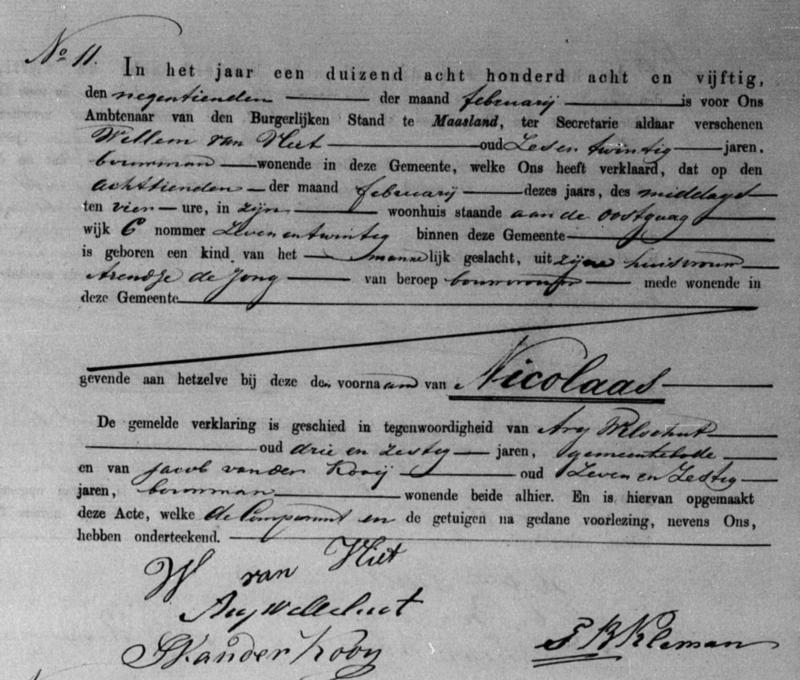 No 11.
In het jaar een duizend acht honderd acht en vijftig,
den negentienden der maand februarij is voor Ons
Ambtenaar van den Burgerlijken Stand te Maasland, ter Secretarie aldaar verschenen
Willem van Vliet oud Zes en twintig jaren,
bouwman wonende in deze Gemeente, welke Ons heeft verklaard, dat op den
achttienden der maand februarij dezes jaars, des middags
ten vier ure, in zijn woonhuis staande aan de oostgaag
wijk C nommer Zeven en twintig binnen deze Gemeente
is geboren een kind van het mannelijk geslacht, uit zijne huisvrouw
Arendje de Jong van beroep bouwvrouw mede wonende in
deze Gemeente
gevende aan hetzelve bij deze den voornaam van Nicolaas
De gemelde verklaring is geschied in tegenwoordigheid van Ary
oud drie en zestig jaren, gemeentebode
en van Jacob van der Kooij oud Zeven en Zestig
jaren, bouwman wonende beide alhier. En is hiervan opgemaakt
deze Acte, welke de Comparant en de getuigen na gedane voorlezing, nevens Ons,
hebben onderteekend.
W van Vliet
Ary
J V ander Kooy